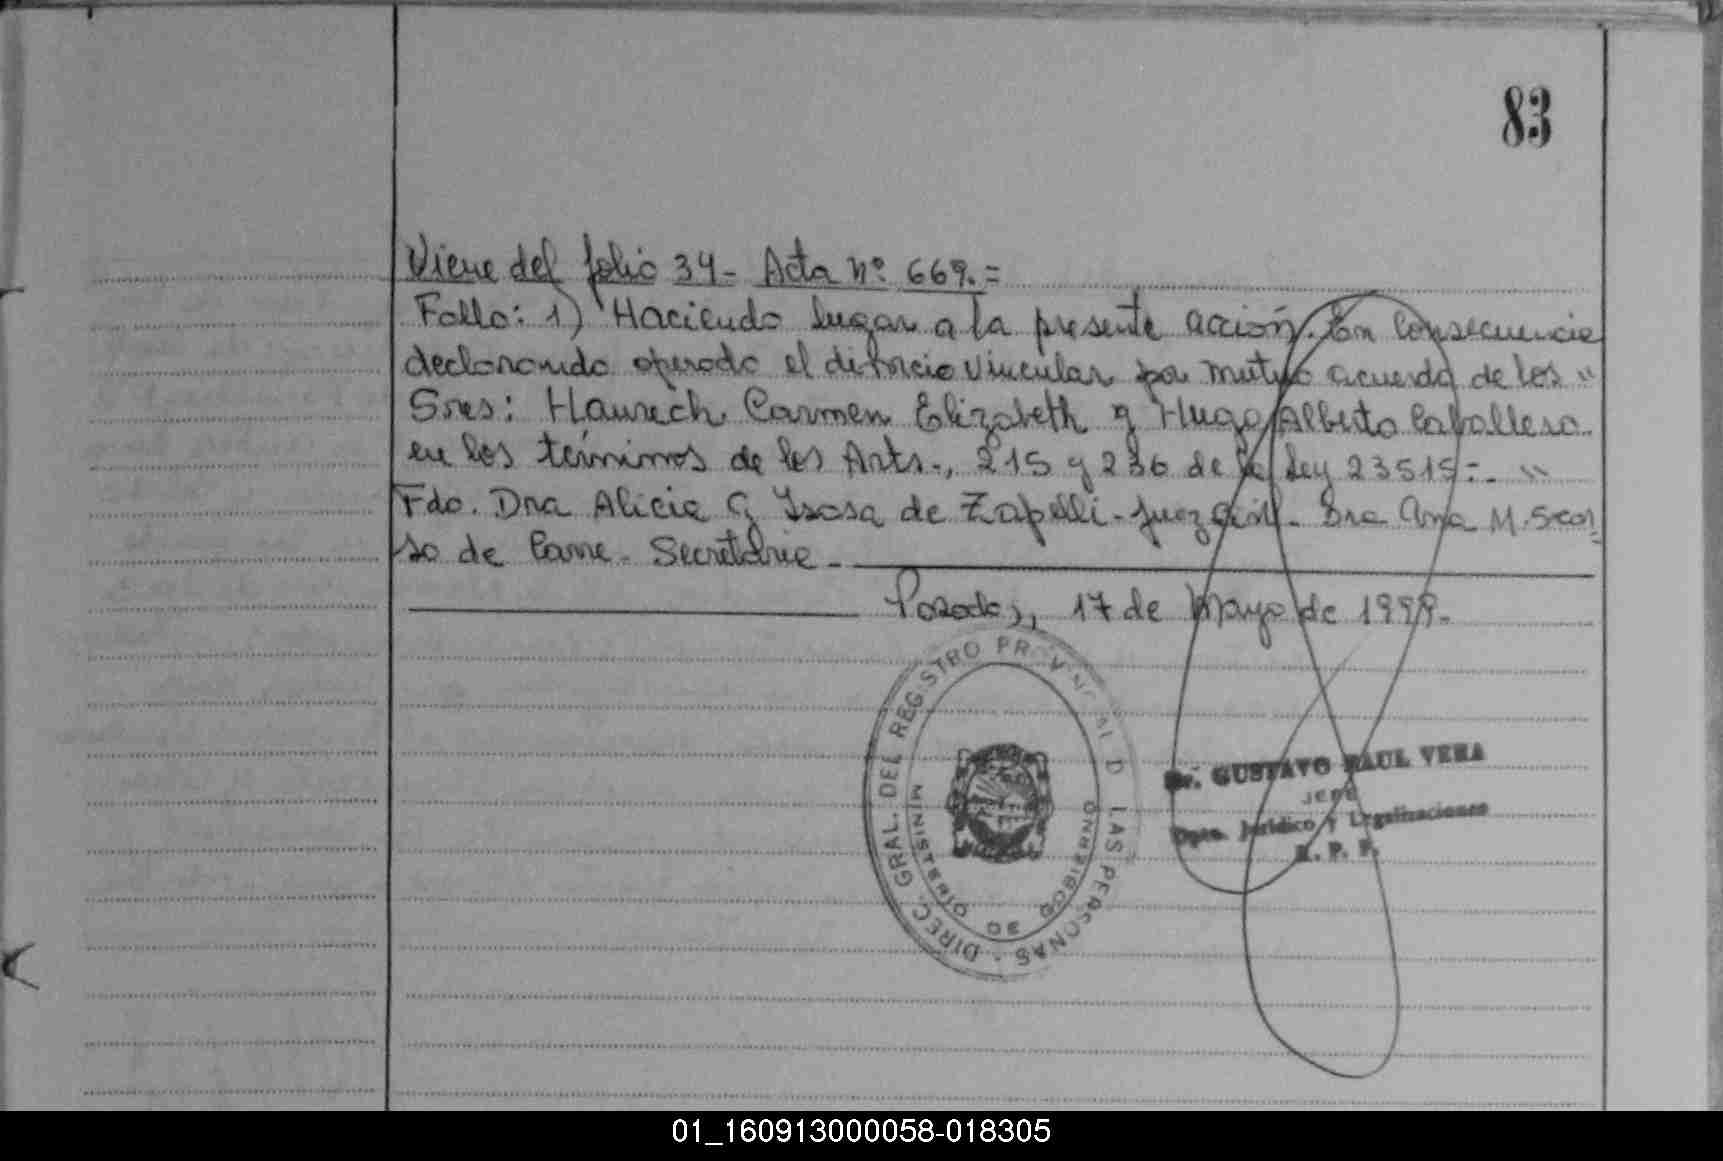 83
Viene del folio 34- Acta Nº 669.=
Fallo: 1) Haciendo lugar a la presente acción. En Consecuencia
declarando operado el divorcio vincular por mutuo acuerdo de los "
Sres: Haurech Carmen Elizabeth y Hugo Alberto Caballero.
en los términos de los Arts., 215 y 236 de la Ley 23515:- "
Fdo. Dra Alicia G Ysasa de Zapelli - Juez Civil - Dra Ana M. Scor
so de Carre - Secretaria -
Posadas, 17 de Mayo de 1999.
DIREC. GRAL. DEL REGISTRO PROVINCIAL D LAS PERSONAS -
MINISTERIO DE GOBIERNO
Dr. GUSTAVO RAUL VERA
JEFE
Dpto. Jurídico y Legalizaciones
R. P. P.
01_160913000058-018305